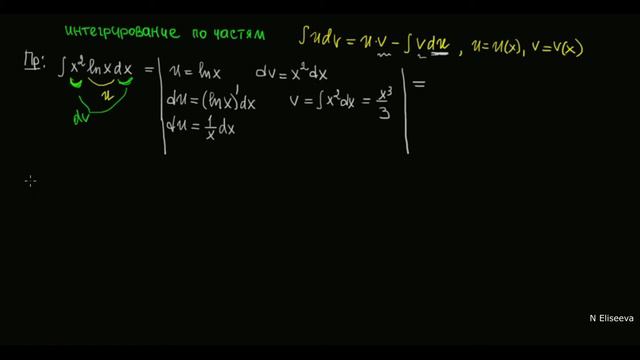 интегрирование по частям
∫udv = u·v − ∫vdu, u=u(x), v=v(x)
Пр: ∫x² lnx dx = | u = lnx dv = x² dx | =
u
dv
du = (lnx)' dx v = ∫x² dx = x³/3
du = 1/x dx
N Eliseeva